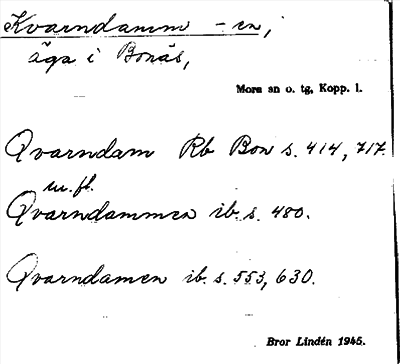 Kvarndamm -en,
äga i Bonäs,
Mora sn o. tg, Kopp. l.
Qvarndam Rb Bon s. 414, 717.
m. fl.
Qvarndammen ib. s. 480.
Qvarndamen ib. s. 553, 630.
Bror Lindén 1945.